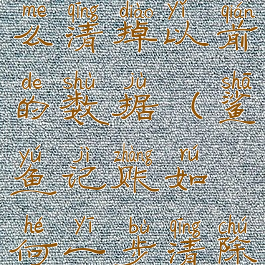 me qīng diào yǐ qián
么清掉以前
de shù jù shā
的数据（鲨
yú jì zhàng rú
鱼记账如
hé yī bù qīng chú
何一步清除